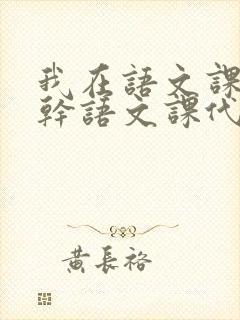 我在語文課
幹語文課代
黃長裕